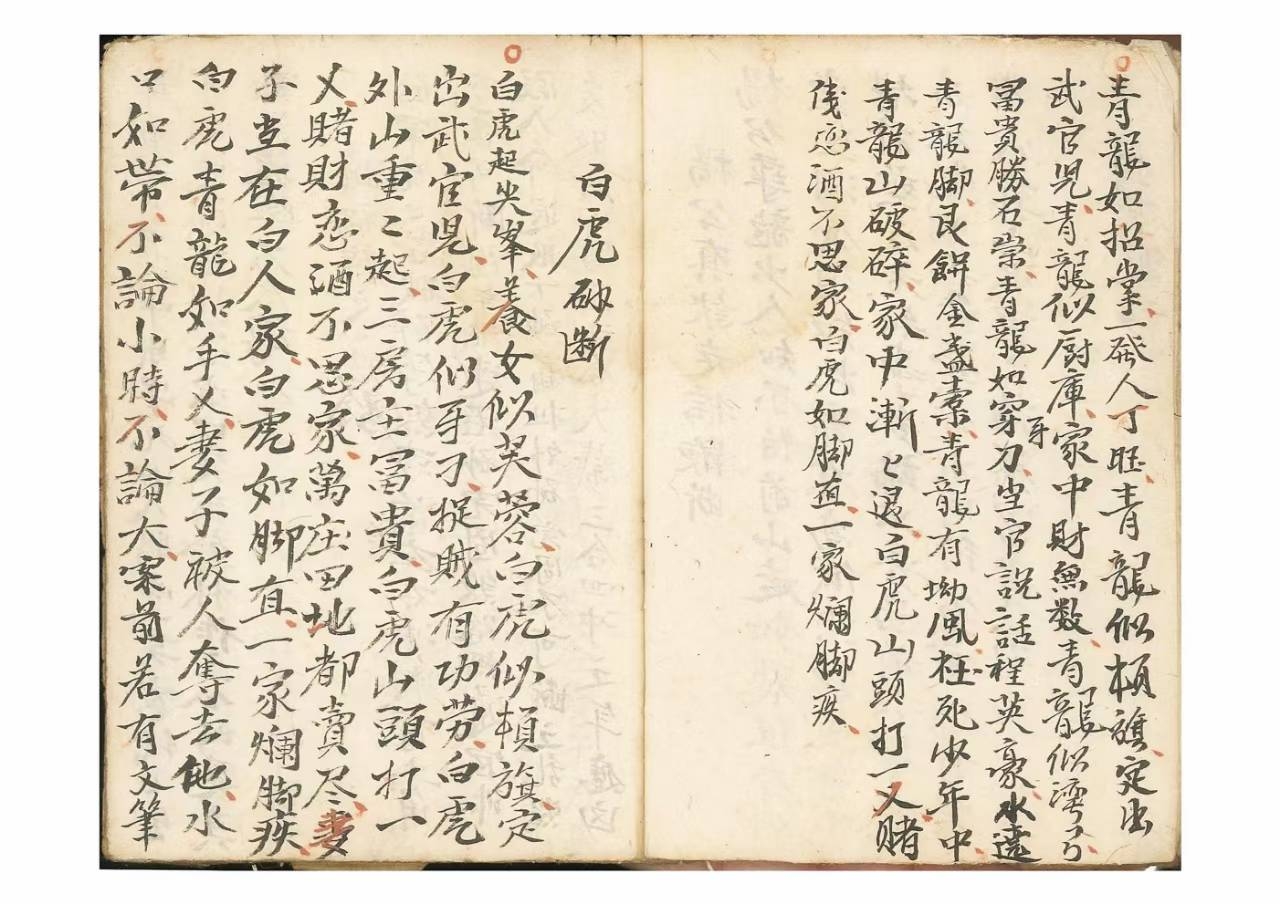 青龍如招掌、一発人丁旺、青龍似頓旗、定出
武官児、青龍似厨庫、家中財無数、青龍似湾弓
冨貴勝石崇、青龍如穿牙刀、坐官説話程英豪、水遶
青龍脚、良餅金盞索、青龍有坳風、枉死少年中
青龍山破碎、家中漸々退、白虎山頭打一乂、賭
伐恋酒不思家、白虎如脚直、一家爛脚疾、
白虎砂断
白虎起尖峯、養女似芙蓉、白虎似頓旗、定
出武官児、白虎似牙刁、捉賊有功劳、白虎
外山重々起、三房士冨貴、白虎山頭打一
乂、賭財恋酒不思家、萬庄田地都賣尽、妻
子生在白人家、白虎如脚直、一家爛脚疾、
白虎青龍如手乂、妻子被人奪去他、水
口如帶、不論小時、不論大、案前若有文筆